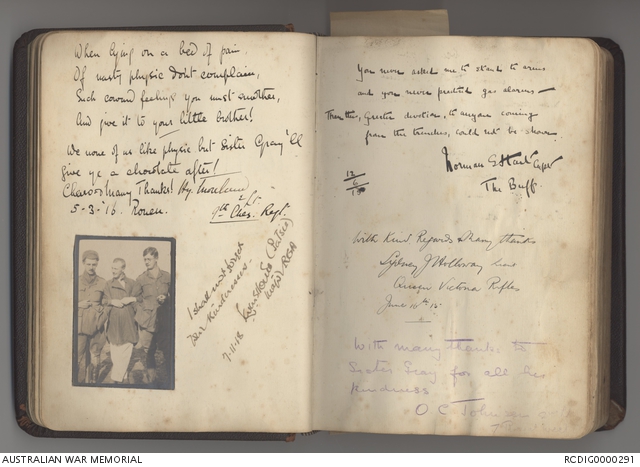 When lying on a bed of pain,
Of nasty physic dont complain,
Such coward feelings you must smother,
And give it to your little brother!
We none of us like physic but Sister Gray'll
give ye a chocolate after!
Many Thanks!
5-3-'16. Rouen.
2/Lt
9th Ches. Regt.
I shall not forget
your kindnesses.
Major RGA
7-11-18
You never asked me to stand to arms
and you never predicted gas alarms —
Than this, greater devotion, to anyone coming
from the trenches, could not be shown.
Norman G. Capt
The Buffs
12/6/15
With Kind Regards & Many thanks
Sydney J Holloway
Queen Victoria Rifles
June 16th 15
With many thanks to
Sister Gray for all her
kindness
O. C.
AUSTRALIAN WAR MEMORIAL
RCDIG0000291